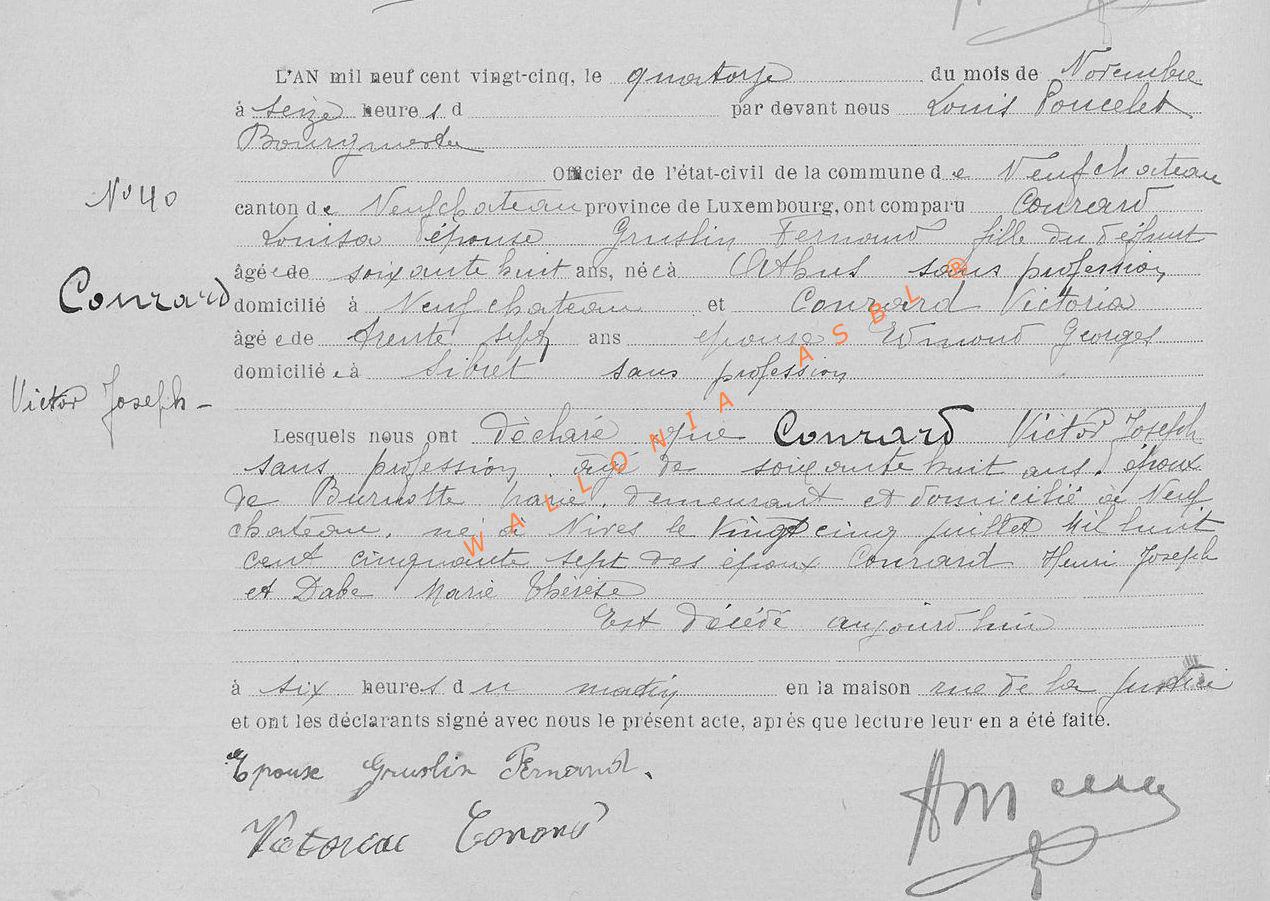 L'AN mil neuf cent vingt-cinq, le quatorze du mois de Novembre
à seize heures d par devant nous Louis Poncelet
Bourgmestre
Officier de l'état-civil de la commune de Neufchateau
N° 40
canton de Neufchateau province de Luxembourg, ont comparu Conrard
Louisa épouse Gruslin Fernand fille du défunt
âgée de soixante huit ans, née à Athus sans profession,
Conrard
domicilié à Neufchateau et Conrard Victoria
âgée de trente sept ans épouse Edmond Georges
domiciliée à Sibret sans profession
Victor Joseph -
Lesquels nous ont déclaré que Conrard Victor Joseph
sans profession, âgé de soixante huit ans, époux
de Burnotte Marie, demeurant et domicilié à Neuf
chateau, né à Nives le vingt cinq juillet Mil huit
cent cinquante sept des époux Conrard Henri Joseph
et Dabe Marie Thérèse
Est décédé aujourd'hui
à six heures du matin en la maison rue de la Justice
et ont les déclarants signé avec nous le présent acte, après que lecture leur en a été faite.
Epouse Gruslin Fernand.
WALLONIA ASBL ®